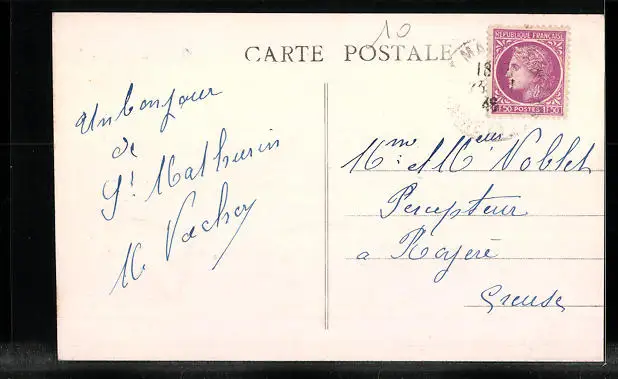 10
CARTE POSTALE
REPUBLIQUE FRANÇAISE
1F50 POSTES 1F50
MA
18
48
Un bonjour
de
St Mathurin
M Vachey
Mme et Mieur Noblet
Percepteur
a Royère
Creuse